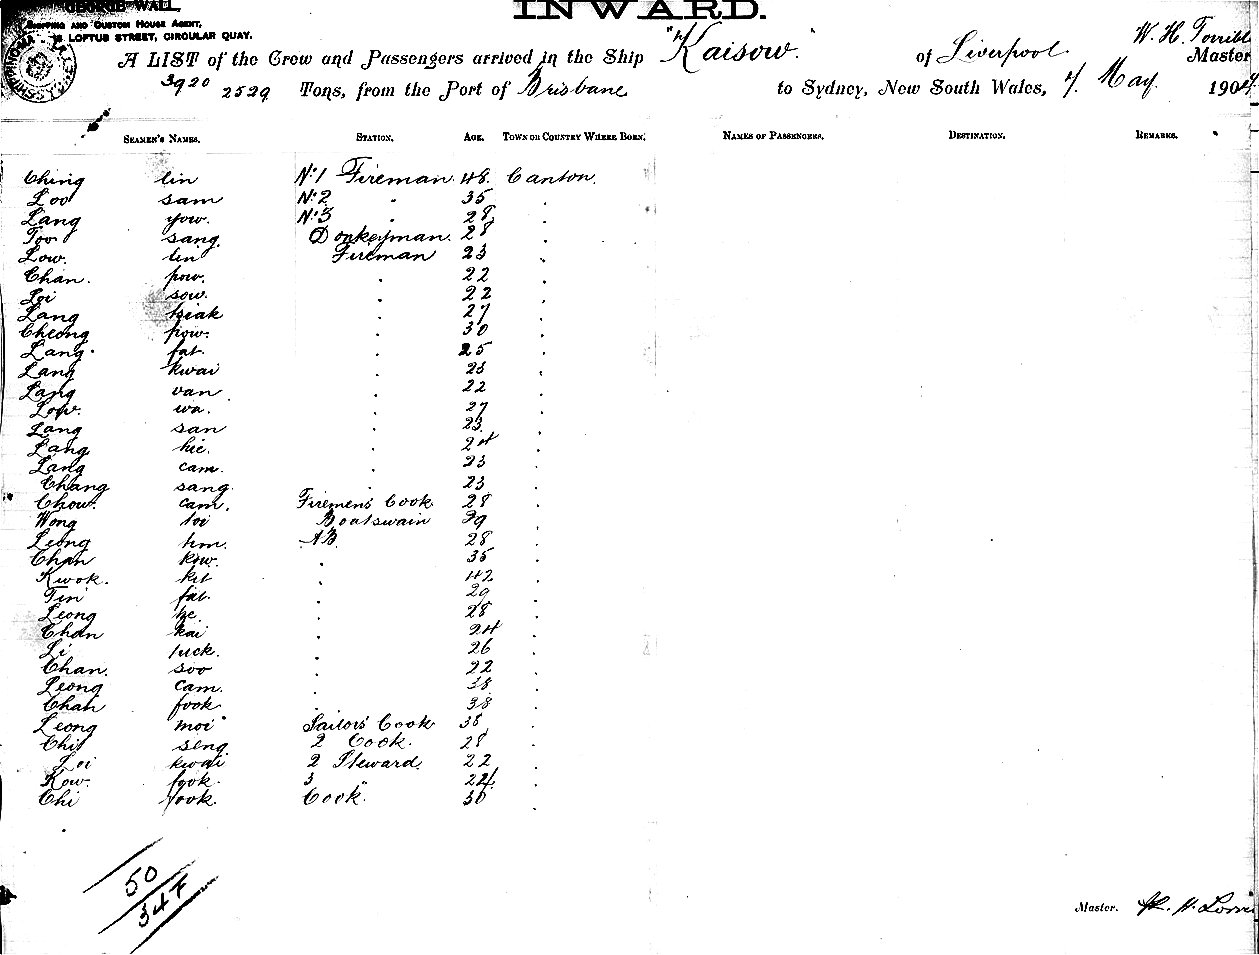 GEORGE WALL,
INWARD.
SHIPPING AND CUSTOM HOUSE AGENT,
LOFTUS STREET, CIRCULAR QUAY.
W. H.
A LIST of the Crew and Passengers arrived in the Ship "Kaisow." of Liverpool Master
3920
2529 Tons, from the Port of Brisbane to Sydney, New South Wales, 7. May. 1904
SEAMEN'S NAMES. STATION. AGE. TOWN OR COUNTRY WHERE BORN. NAMES OF PASSENGERS. DESTINATION. REMARKS.
Ching lin No. 1 Fireman 48. Canton.
Loo sam No. 2 " 35 "
Lang yow. No. 3 " 28 "
Too sang. Donkeyman. 28 "
Low. lin Fireman 23 "
Chan. pow. " 22 "
Loi sow. " 22 "
Lang kiak " 27 "
Cheong pow. " 30 "
Lang fat. " 25 "
Lang kwai " 23 "
Lang van " 22 "
Low. wa. " 27 "
Lang san " 23 "
Lang hie. " 24 "
Lang cam. " 23 "
Chang sang. " 23 "
Chow. cam. Firemen's Cook. 28 "
Wong loi Boatswain 39 "
Leong him. AB. 28 "
Chan kow. " 35 "
Kwok. kit " 42 "
Tin fat. " 29 "
Leong " 28 "
Chan kai " 24 "
Li luck. " 26 "
Chan. soo " 22 "
Leong cam. " 38 "
Chan fook. " 38 "
Leong moi Sailors' Cook 38 "
Chit seng 2 Cook. 28 "
Loi kwai 2 Steward. 22 "
Kow. fook. 3 " 24 "
Chi fook. Cook. 30 "
50
34 F
Master. W. H.